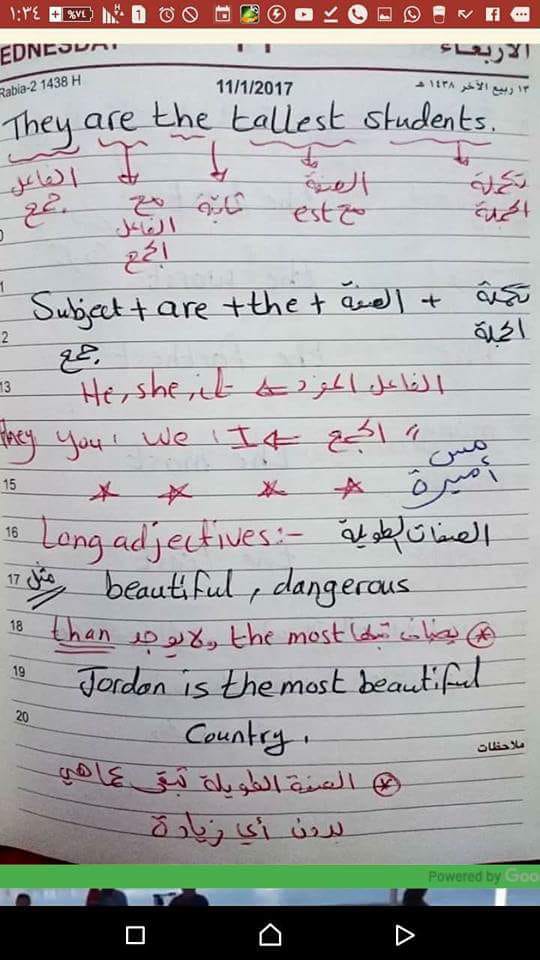 ١:٣٤
%٧٤
EDNESDAY
الأربعاء
Rabia-2 1438 H
11/1/2017
١٣ ربيع الآخر ١٤٣٨ هـ
They are the tallest students.
الفاعل جمع
مع الفاعل الجمع
ثابتة
الصفة مع est
تكملة الجملة
1
Subject + are + the + الصفة + تكملة الجملة
جمع
2
He, she, it ← الفاعل المفرد
13
They you، we، I ← الجمع
مس أميرة
15
16 Long adjectives:- الصفات الطويلة
17 مثل beautiful, dangerous
18 يضاف قبلها the most ولا يوجد than
19 Jordan is the most beautiful
20 Country.
ملاحظات
الصفة الطويلة تبقى كما هي
بدون أي زيادة
Powered by Goo